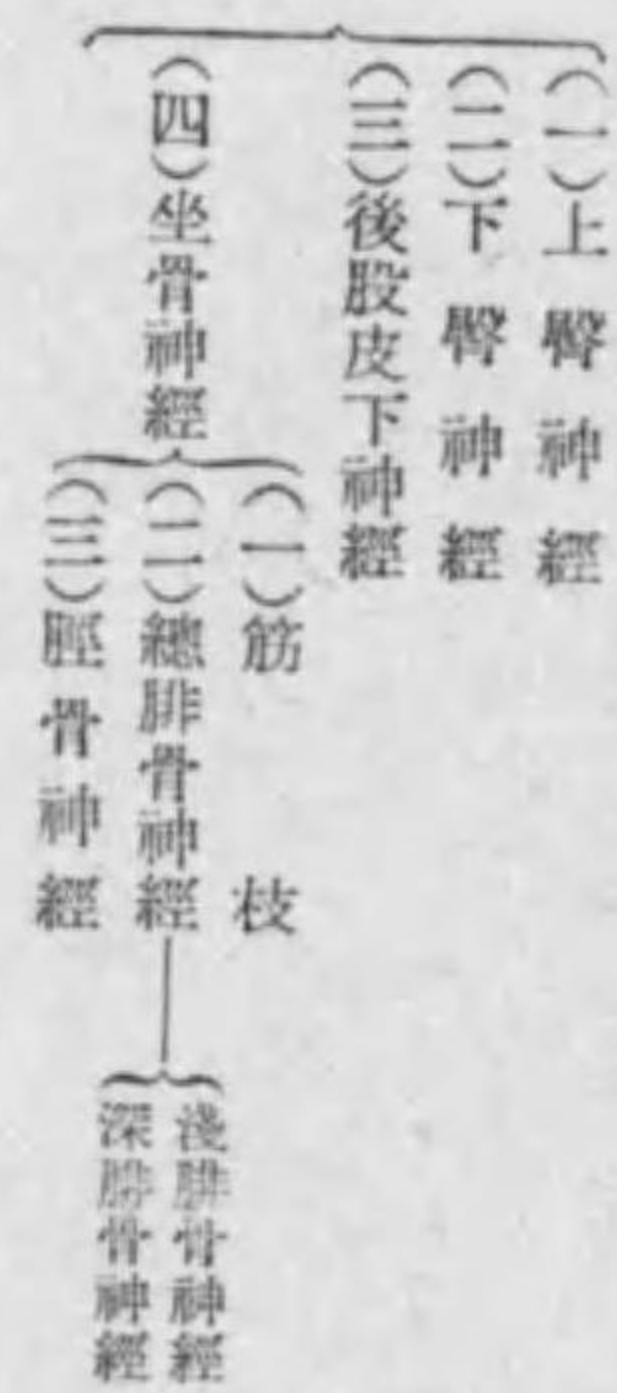 (一)上臀神經
(二)下臀神經
(三)後股皮下神經
(四)坐骨神經
(一)筋枝
(二)總腓骨神經
淺腓骨神經
深腓骨神經
(三)脛骨神經